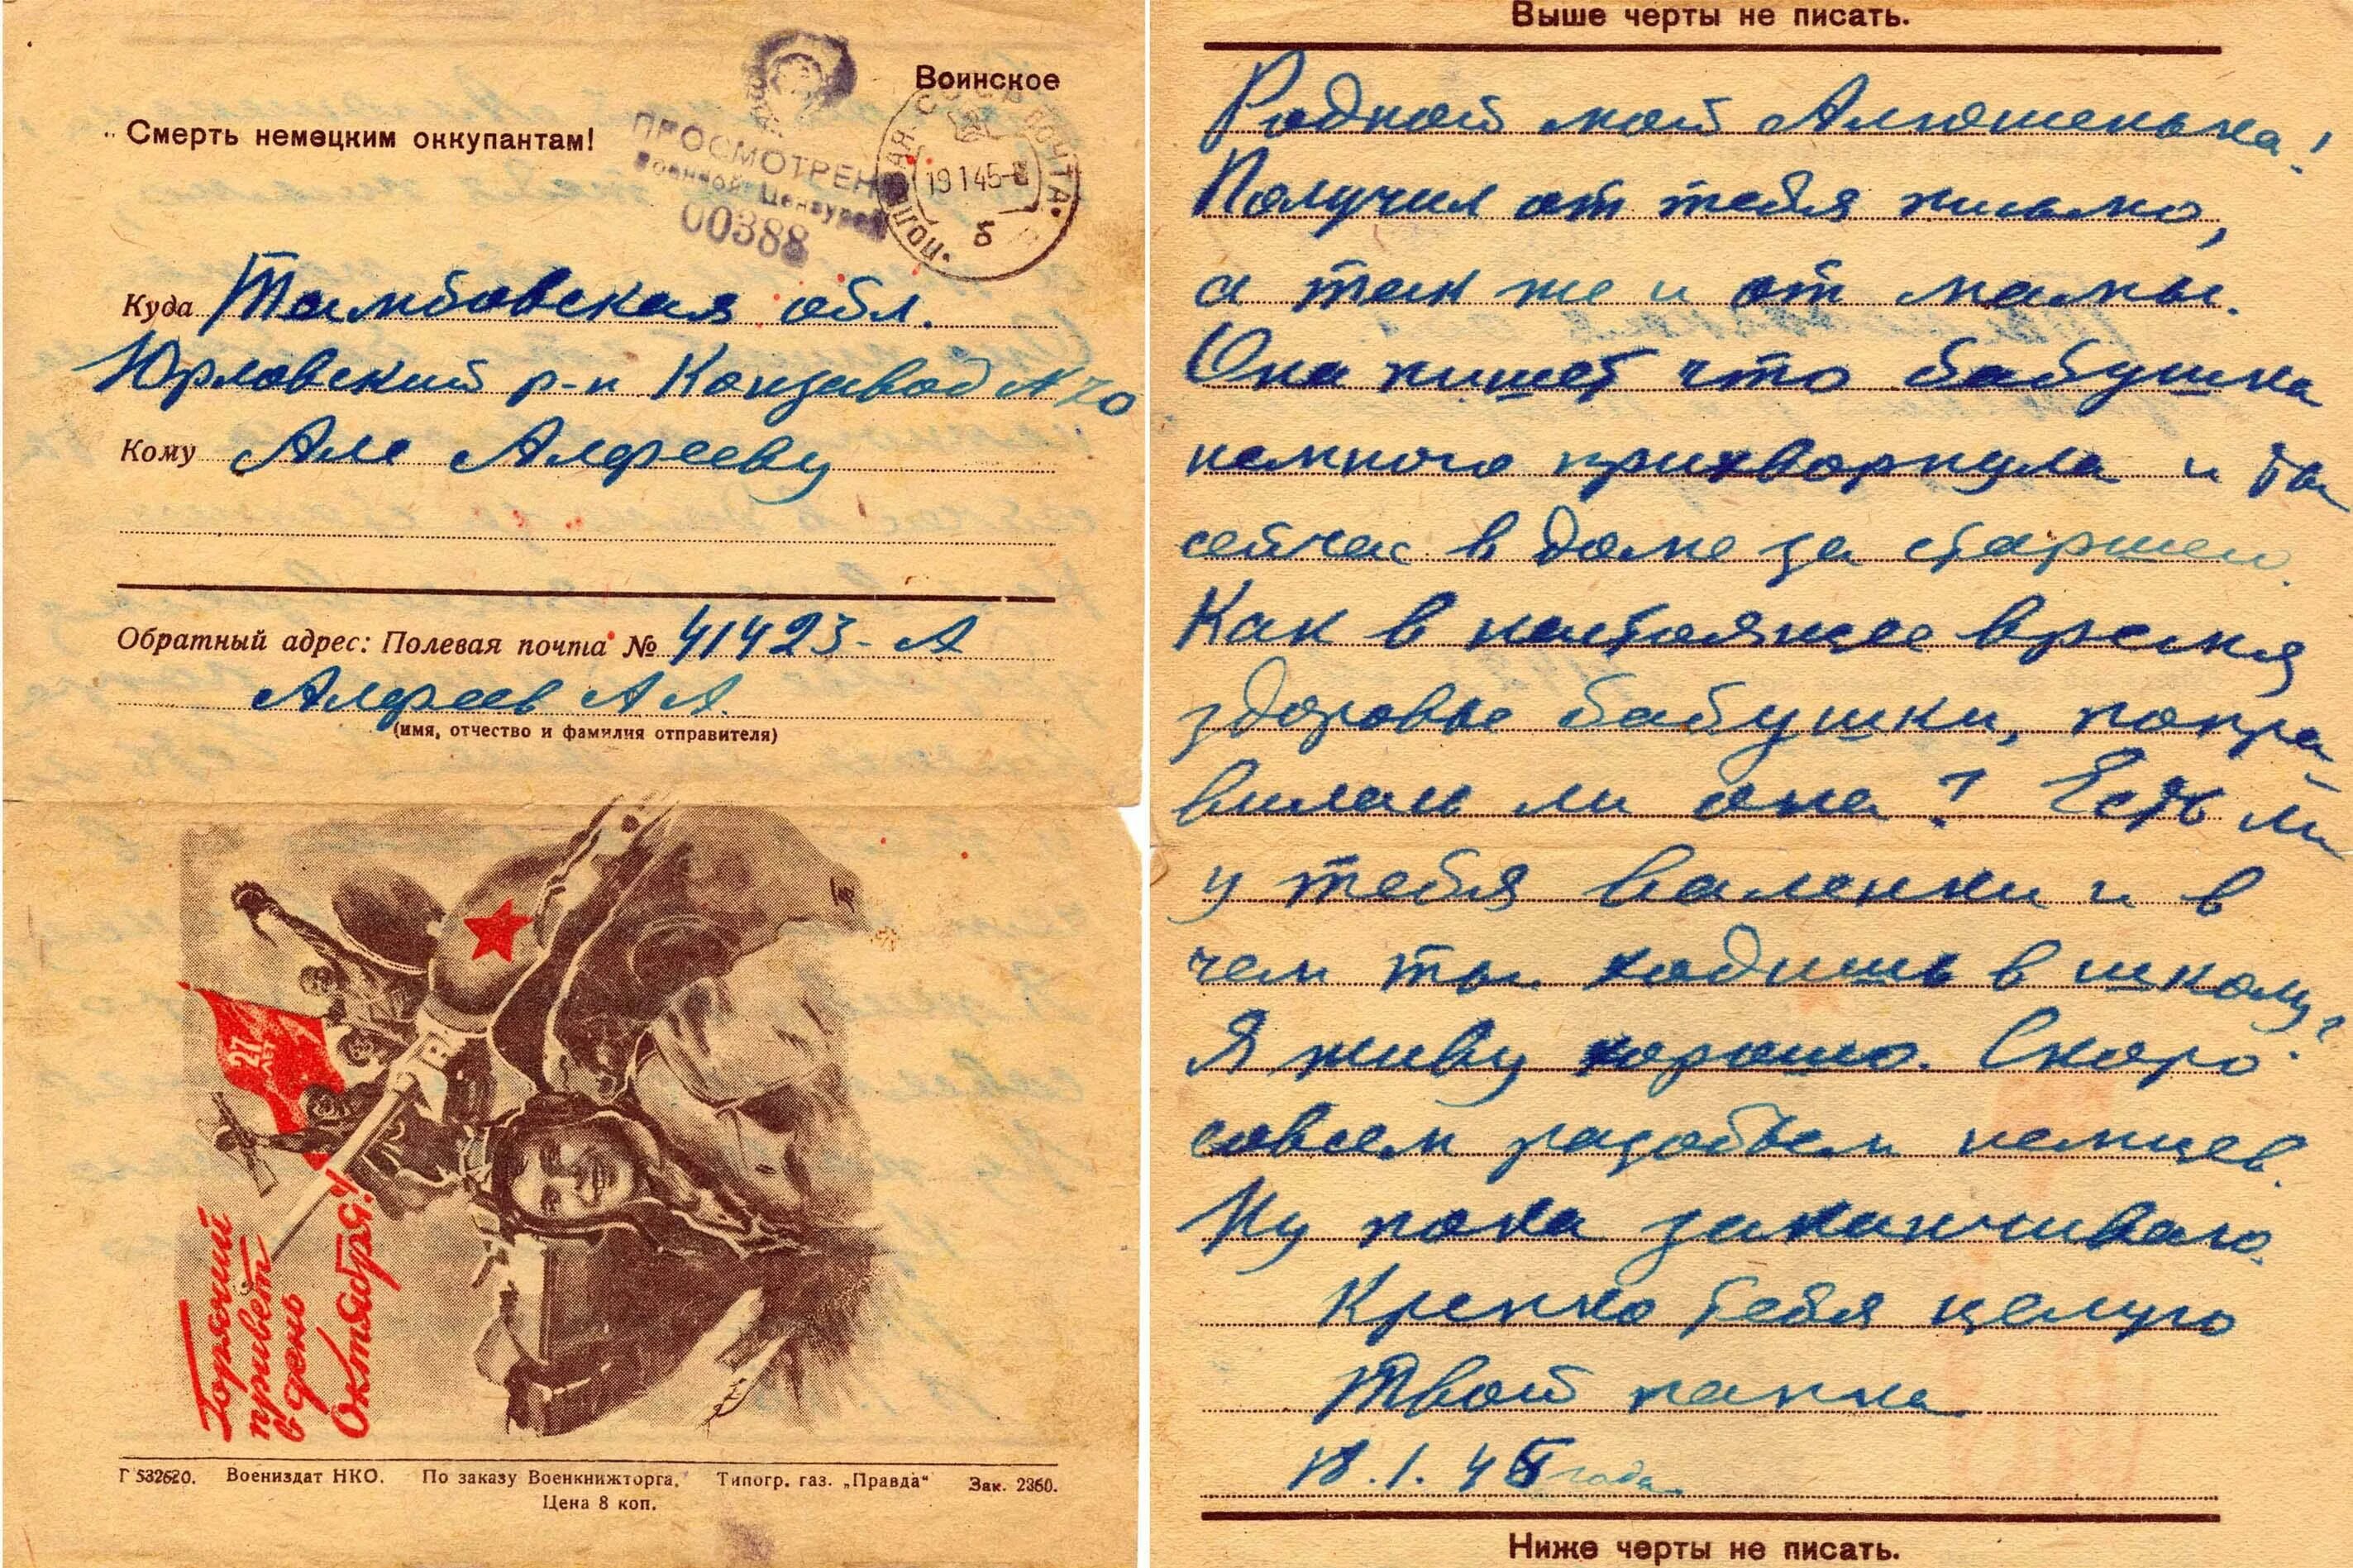 Воинское
Смерть немецким оккупантам!
ПРОСМОТРЕНО
Военной Цензурой
00388
СССР ПОЛЕВАЯ ПОЧТА
19 1 45
Куда Тамбовская обл.
Юрловский р-н Конзавод № 70
Кому Але Алфееву
Обратный адрес: Полевая почта № 41423-А
Алфеев А А.
(имя, отчество и фамилия отправителя)
27
ЛЕТ
Горячий
привет
в день
Октября!
Г 532620. Воениздат НКО. По заказу Военкнижторга. Типогр. газ. „Правда“ Зак. 2360.
Цена 8 коп.
Выше черты не писать.
Родной мой Алюшенька!
Получил от тебя письмо,
а так же и от мамы.
Она пишет что бабушка
немного прихворнула и ты
сейчас в доме за старшего.
Как в настоящее время
здоровье бабушки, попра-
вилась ли она? Есть ли
у тебя валенки и в
чем ты ходишь в школу?
Я живу хорошо. Скоро
совсем разобьем немцев.
Ну пока заканчиваю.
Крепко тебя целую
Твой папка
18.1.45 года.
Ниже черты не писать.